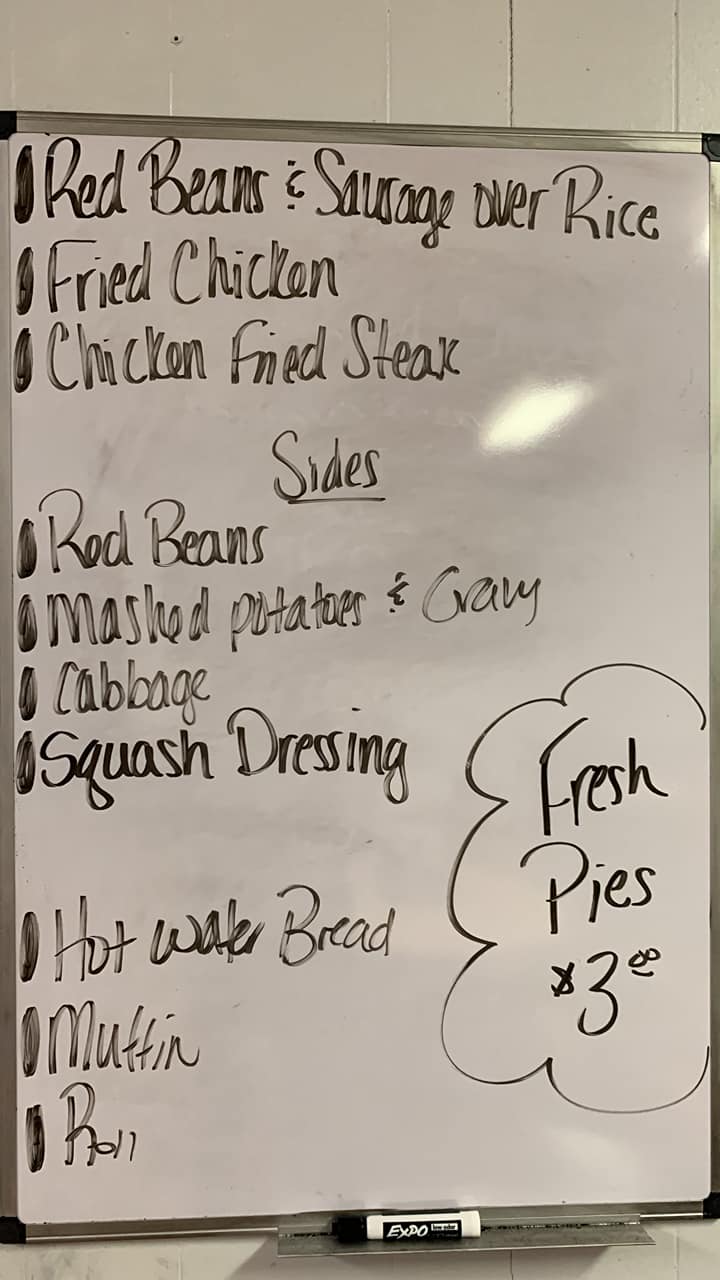 Red Beans & Sausage over Rice
Fried Chicken
Chicken Fried Steak
Sides
Red Beans
Mashed potatoes & Gravy
Cabbage
Squash Dressing
Hot water Bread
Muffin
Roll
Fresh
Pies
$3.00
EXPO low odor